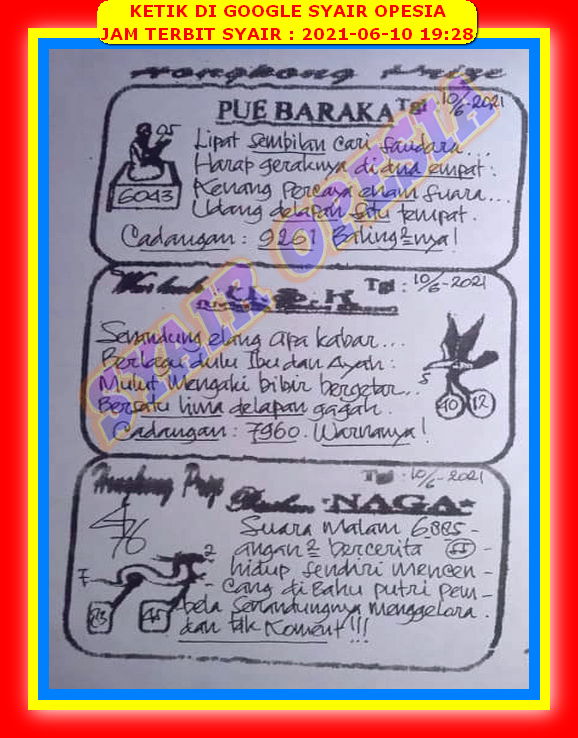 KETIK DI GOOGLE SYAIR OPESIA
JAM TERBIT SYAIR : 2021-06-10 19:28
Hongkong Prize
PUE BARAKA Tgl : 10/6-2021
05
6043
Lipat Sembilan Cari Saudara...
Harap geraknya di dua empat.
Kenang Percaya enam Suara...
Udang delapan Satu tempat.
Cadangan : 9261 Baling2nya!
Tgl : 10/6-2021
Senandung elang apa kabar...
Berlagu dulu Ibu dan Ayah :
Mulut Mengaki bibir bergetar...
Bersatu lima delapan gagah.
Cadangan : 7960. Warnanya!
5
10 12
SYAIR OPESIA
Hongkong Tgl : 10/6-2021
NAGA
Suara Malam
angan2 bercerita -
hidup Sendiri Mencen -
Cang di Bahu putri Pem -
bela Senandungnya Menggelora.
dan tak Koment!!!
2
7